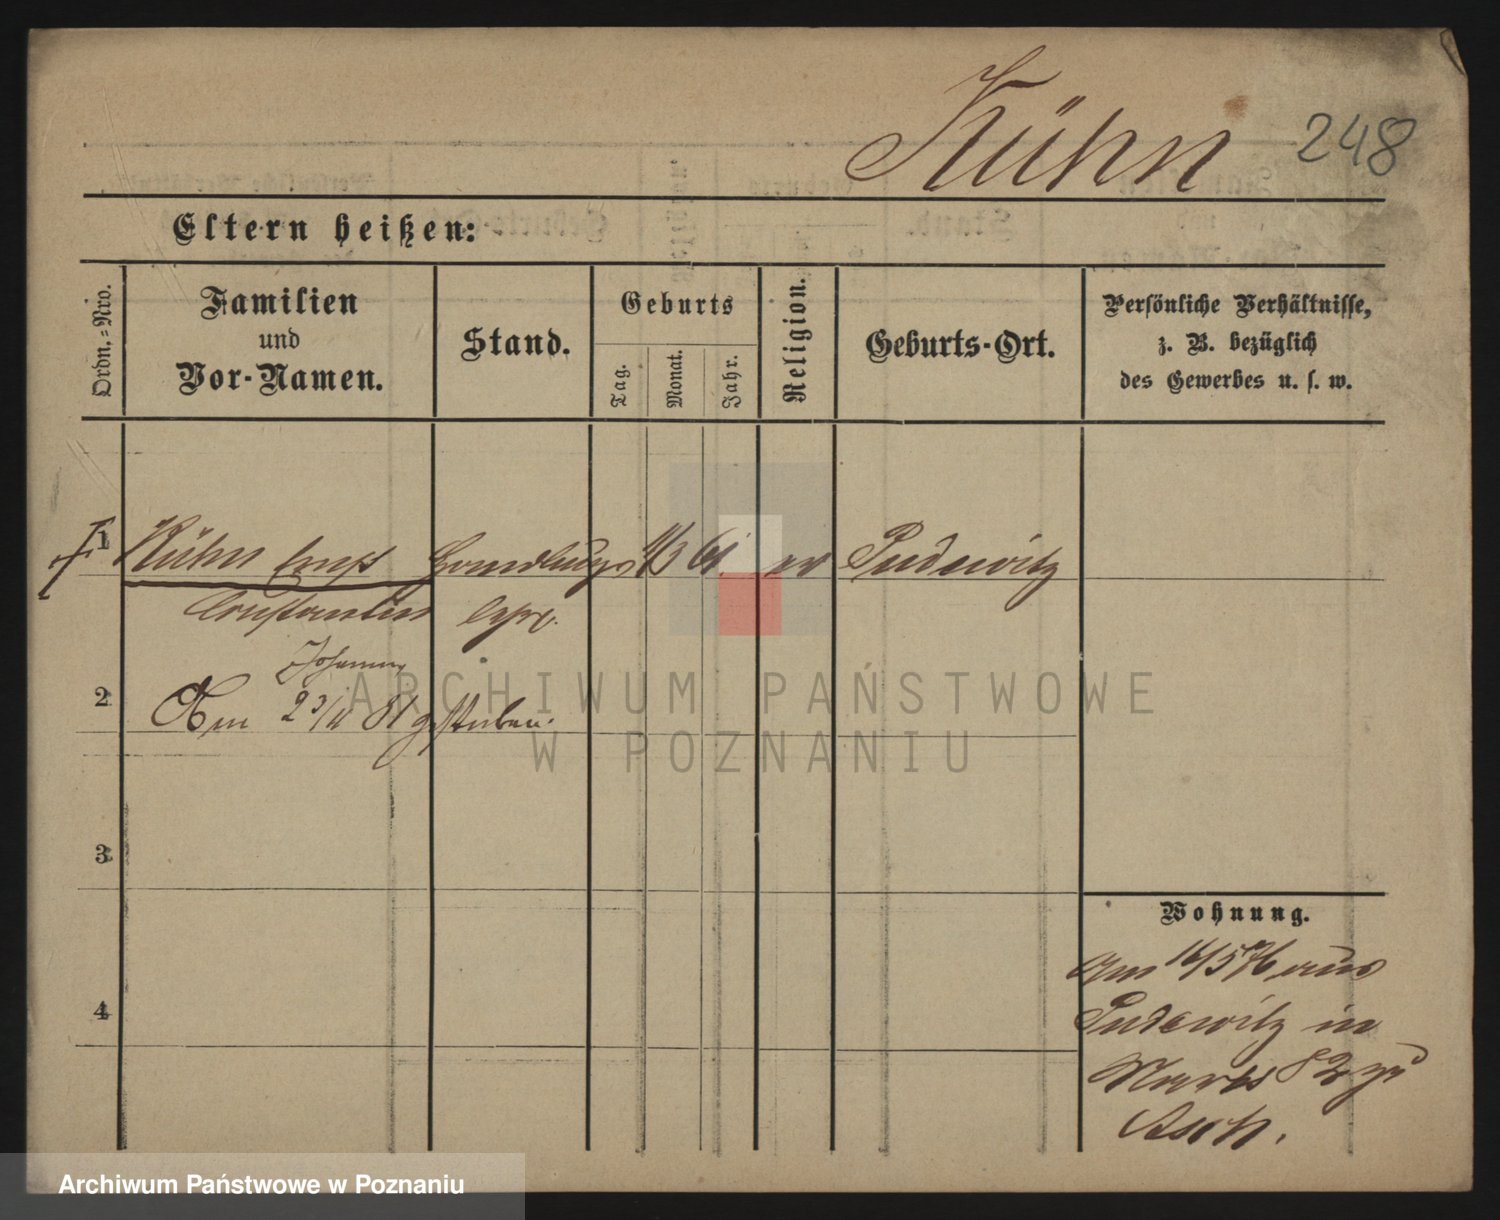 Kühn 248
Eltern heißen:
Ordn.-Nro.
Familien
und
Vor-Namen.
Stand.
Geburts
Tag.
Monat.
Jahr.
Religion.
Geburts-Ort.
Persönliche Verhältnisse,
z. B. bezüglich
des Gewerbes u. s. w.
1 Kühn Ernst Handlungs 11/3 61 ev Pudewitz
Constantin
Johannes
2 Am 23/11 81 gestorben.
3
4
Wohnung.
Am 16/5 76 aus
Pudewitz in
Markt 82 zu
Asch.
ARCHIWUM PAŃSTWOWE
W POZNANIU
Archiwum Państwowe w Poznaniu